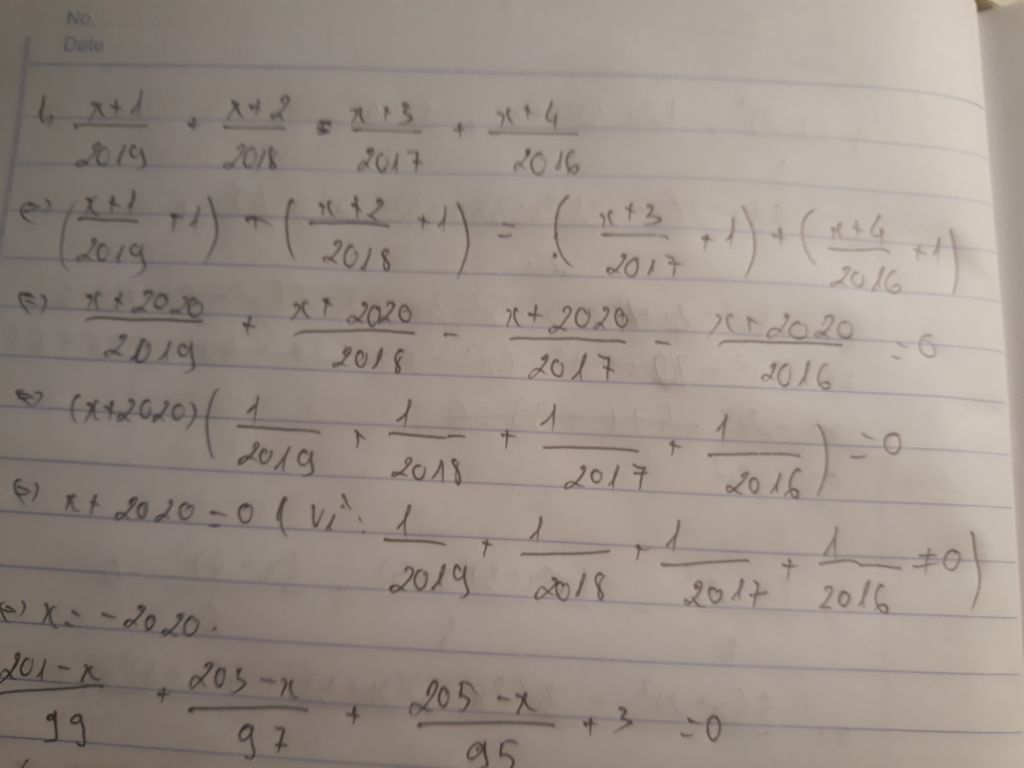 No.
Date
1, (x+1)/2019 + (x+2)/2018 = (x+3)/2017 + (x+4)/2016
<=> ((x+1)/2019 + 1) + ((x+2)/2018 + 1) = ((x+3)/2017 + 1) + ((x+4)/2016 + 1)
<=> (x+2020)/2019 + (x+2020)/2018 - (x+2020)/2017 - (x+2020)/2016 = 0
<=> (x+2020)(1/2019 + 1/2018 + 1/2017 + 1/2016) = 0
<=> x + 2020 = 0 (Vì: 1/2019 + 1/2018 + 1/2017 + 1/2016 ≠ 0)
<=> x = -2020.
(201-x)/99 + (203-x)/97 + (205-x)/95 + 3 = 0